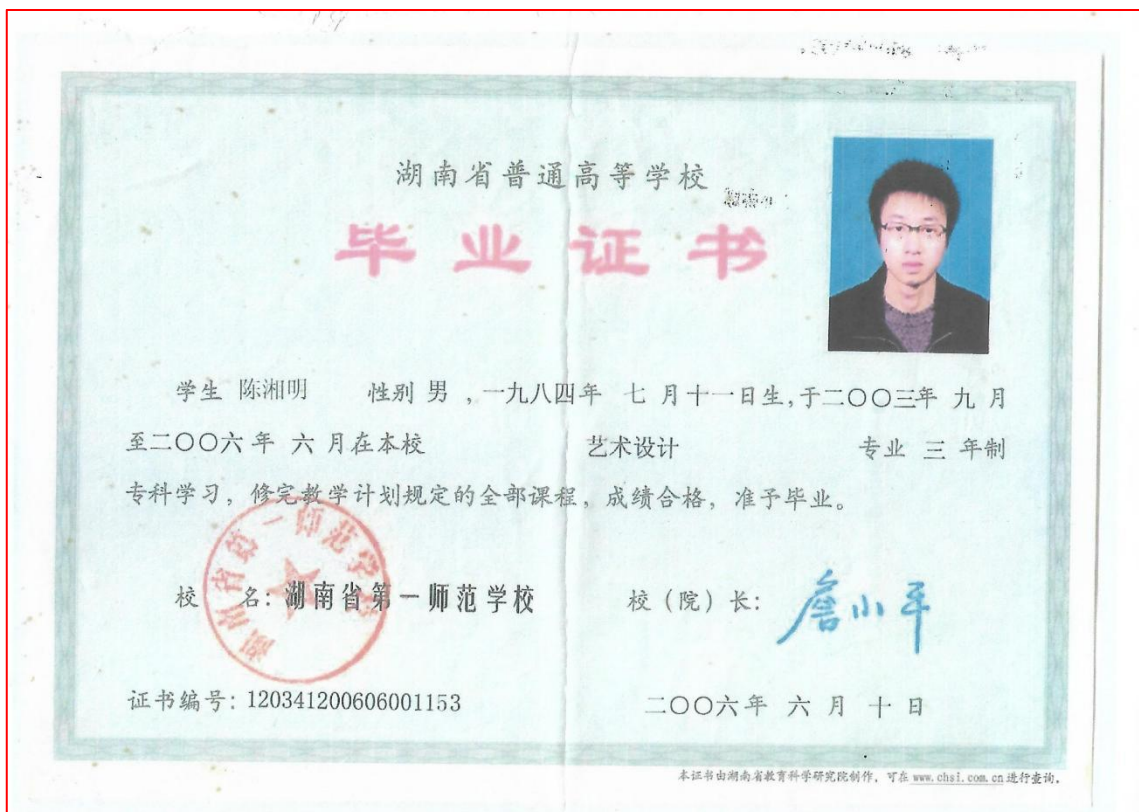 湖南省普通高等学校
毕业证书
学生 陈湘明 性别 男 ,一九八四年 七 月十一日生,于二〇〇三年 九 月
至二〇〇六 年 六 月在本校 艺术设计 专业 三 年制
专科学习,修完教学计划规定的全部课程,成绩合格,准予毕业。
湖南省第一师范学校
校 名:湖南省第一师范学校 校(院)长: 詹小平
证书编号:120341200606001153 二〇〇六年 六 月 十 日
本证书由湖南省教育科学研究院制作,可在 www.chsi.com.cn 进行查询。